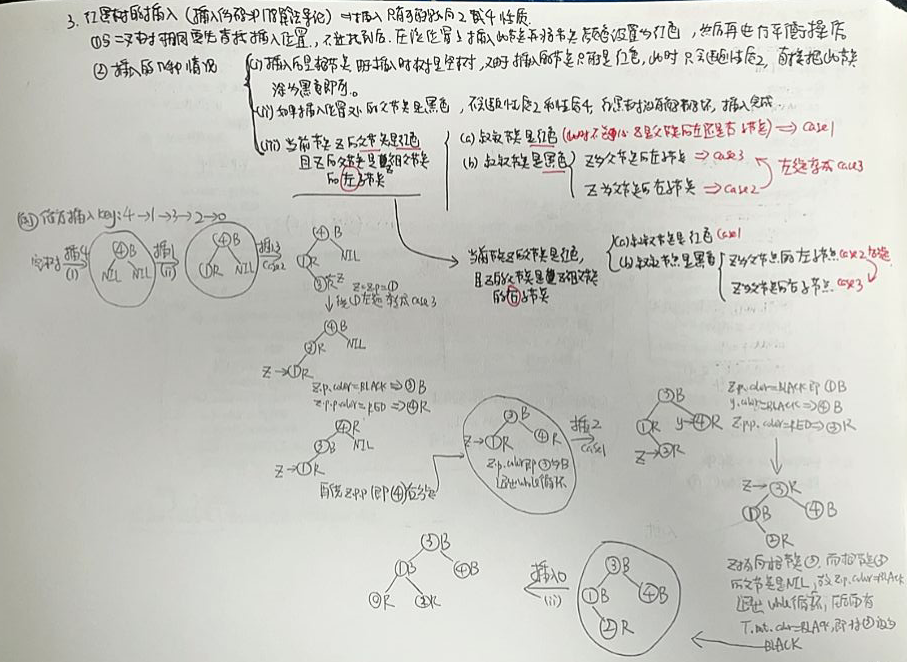 3. 红黑树的插入 (插入伪码见P178算法导论) ⇒ 插入只有可能破坏2或4性质.
①与二叉树一样需要先查找插入位置, 不过找到后, 在该位置上插入此节点并将节点颜色设置为红色, 然后再进行平衡操作
② 插入的几种情况
(i) 插入的是根节点 即插入时树是空树, 这时插入的节点只能是红色, 此时只会违反性质2, 直接把此节点
涂为黑色即可.
(ii) 如果插入位置处的父节点是黑色, 不会违反性质2和性质4, 红黑树没有被破坏, 插入完成.
(iii) 当前节点Z的父节点是红色
且Z的父节点是其祖父节点
的左子节点
(a) 叔叔节点是红色 (此时不关心Z是父节点的左还是右子节点) ⇒ case1
(b) 叔叔节点是黑色
Z为父节点的左子节点 ⇒ case3
Z为父节点的右子节点 ⇒ case2
左旋变成case3
当前节点Z的父节点是红色,
且Z的父节点是其祖父节点
的右子节点
(a) 叔叔节点是红色 case1
(b) 叔叔节点是黑色
Z为父节点的左子节点 case2 右旋
Z为父节点的右子节点 case3
例) 依次插入key: 4→1→3→2→0
空树 插4 (i)
④B
NIL NIL
插1 (ii)
④B
①R NIL
插3 case2
④B
①R NIL
③R Z
Z=Z.p=①
绕①左旋变成case3
④B
③R NIL
Z→①R
Z.p.color=BLACK ⇒ ③B
Z.p.p.color=RED ⇒ ④R
④R
③B NIL
Z→①R
再绕Z.p.p (即④) 右旋
③B
Z→①R ④R
Z.p.color即③为B
退出while循环
插2
case1
③B
①R y→④R
Z→②R
Z.p.color=BLACK即①B
y.color=BLACK⇒④B
Z.p.p.color=RED⇒③R
Z→③R
①B ④B
②R
Z指向根节点③, 而根节点③
的父节点是NIL, 故Z.p.color=BLACK
退出while循环, 而后面有
T.root.color=BLACK, 即将③设为
BLACK
③B
①B ④B
②R
插入0
(ii)
③B
①B ④B
⓪R ②R